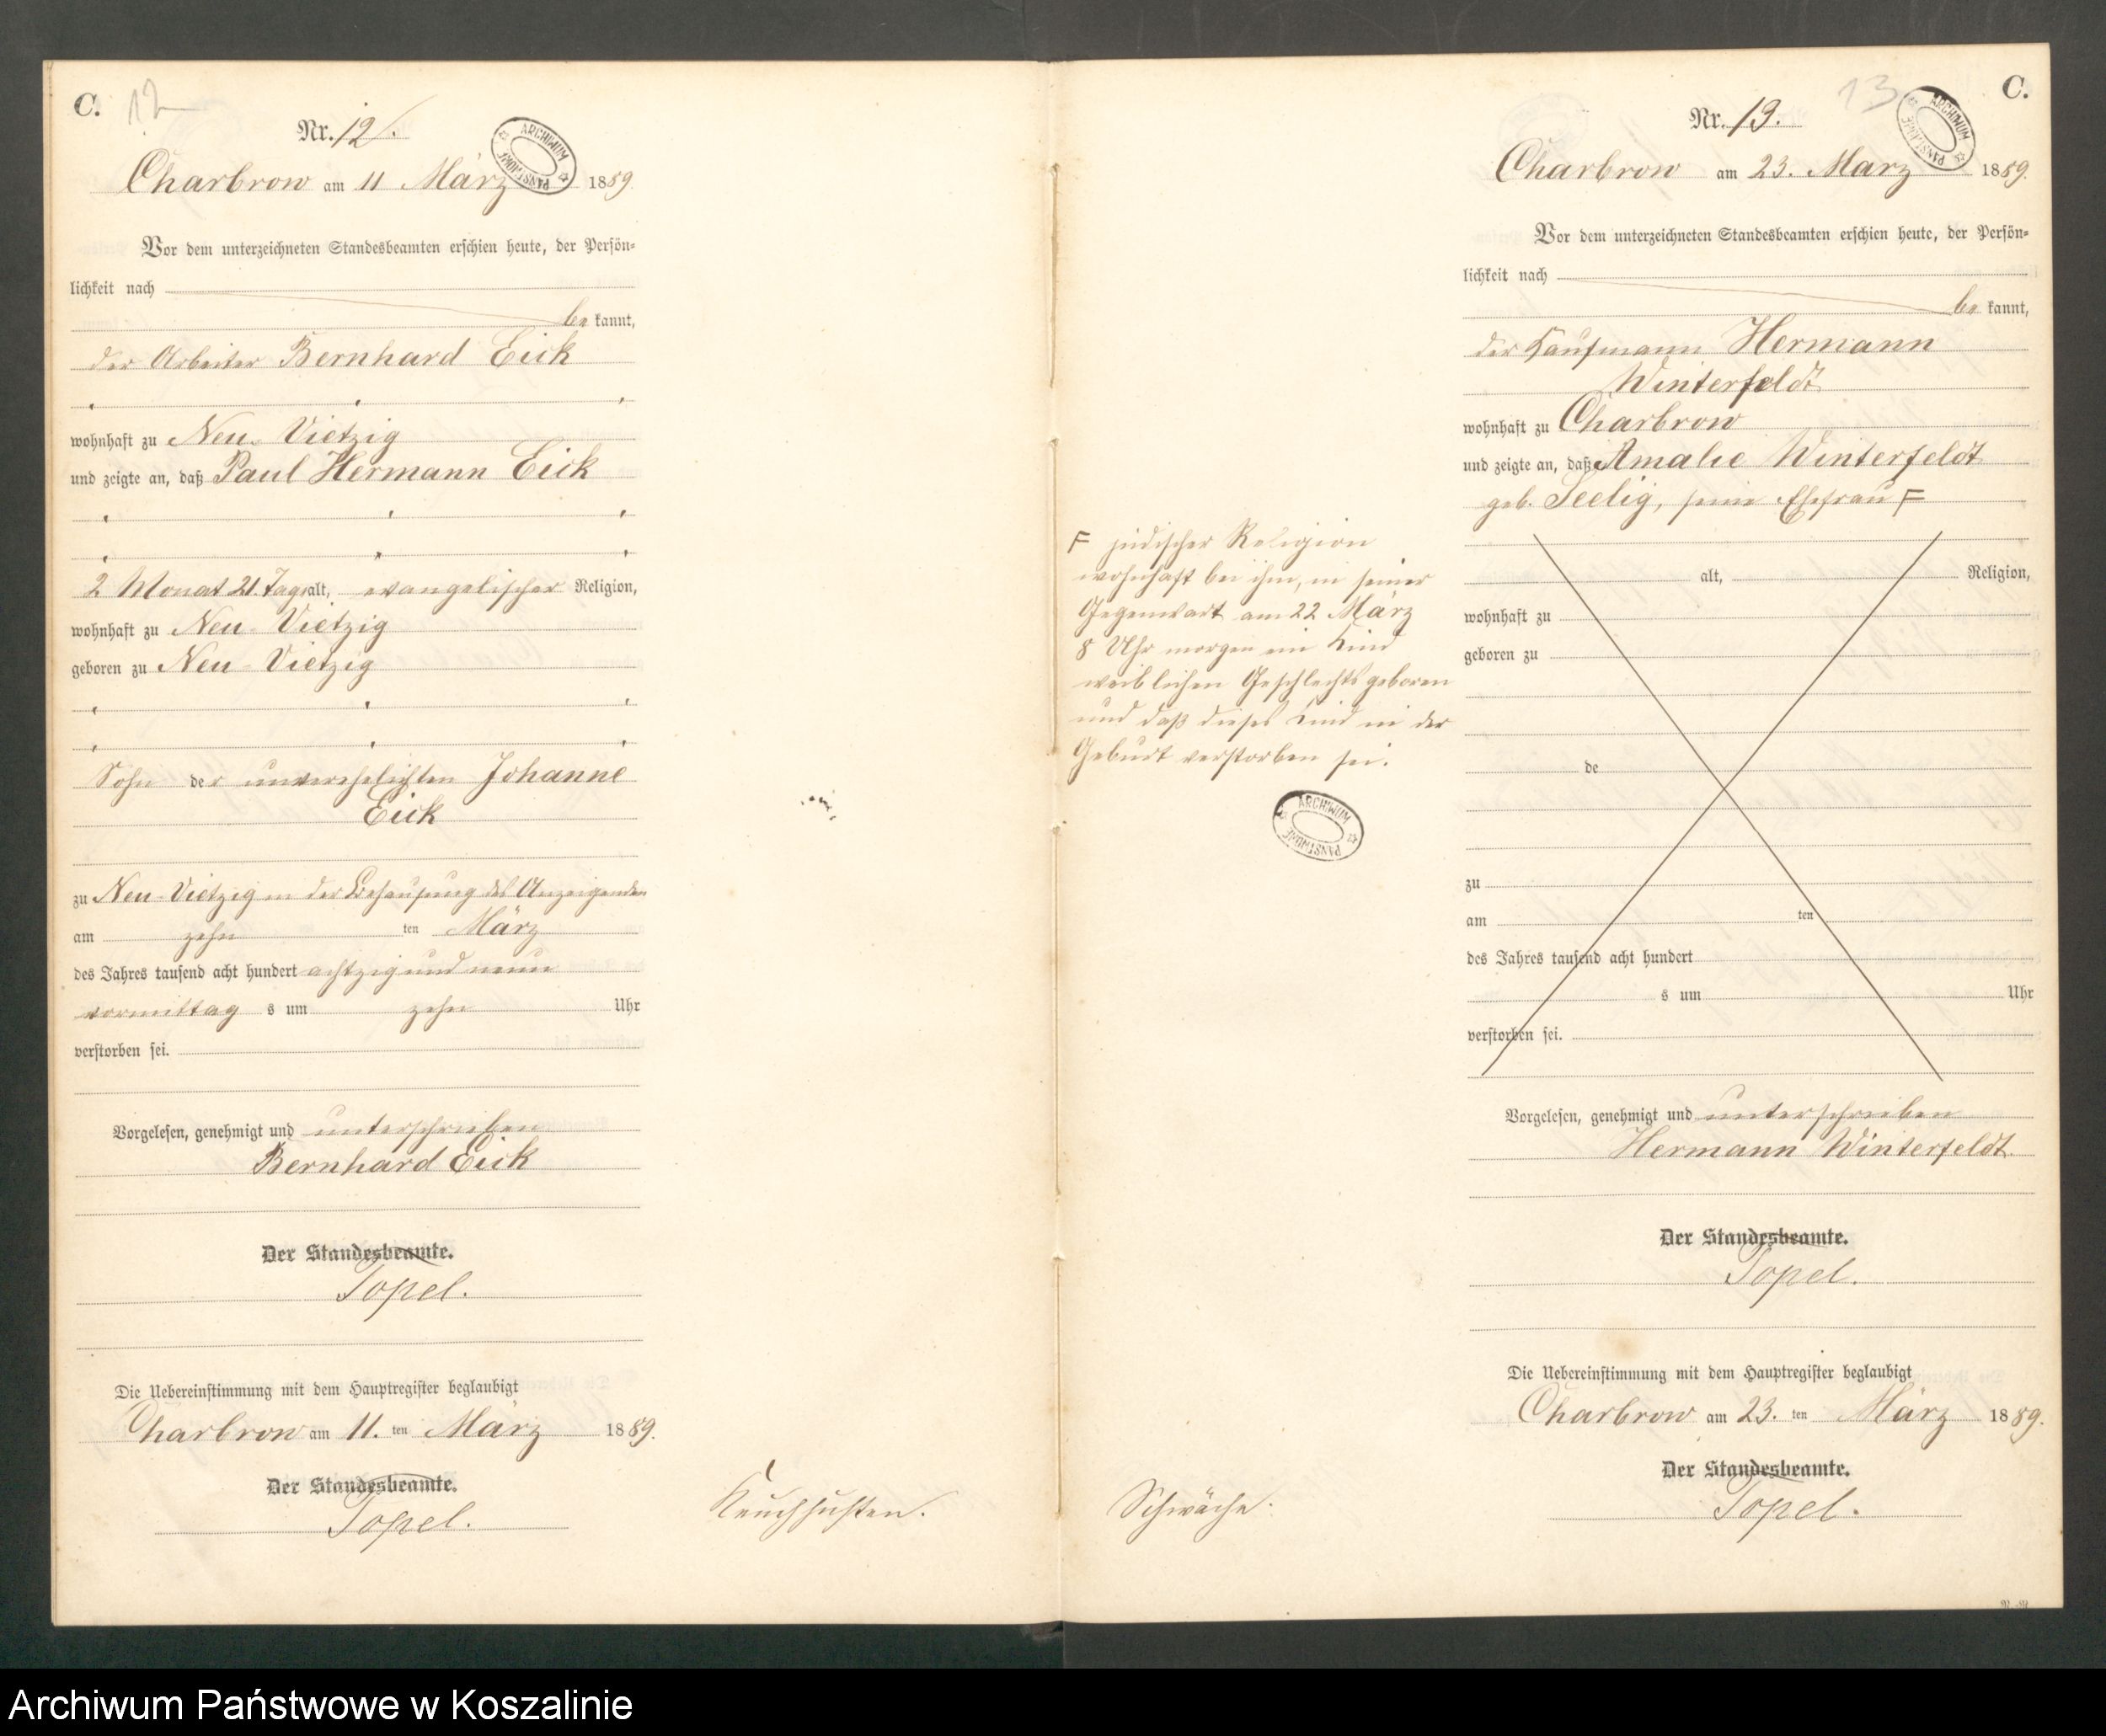 C. 12
Nr. 12.
ARCHIWUM PAŃSTWOWE
Charbrow am 11 März 1889.
Vor dem unterzeichneten Standesbeamten erschien heute, der Persön-
lichkeit nach
be kannt,
der Arbeiter Bernhard Eick
wohnhaft zu Neu-Vietzig
und zeigte an, daß Paul Hermann Eick
2 Monat 21 Tage alt, evangelischer Religion,
wohnhaft zu Neu-Vietzig
geboren zu Neu-Vietzig
Sohn der unverehelichten Johanne
Eick
zu Neu-Vietzig in der Behausung des Anzeigenden
am zehn ten März
des Jahres tausend acht hundert achtzig und neun
vormittag s um zehn Uhr
verstorben sei.
Vorgelesen, genehmigt und unterschrieben
Bernhard Eick
Der Standesbeamte.
Topel.
Die Uebereinstimmung mit dem Hauptregister beglaubigt
Charbrow am 11. ten März 1889.
Der Standesbeamte.
Topel.
Keuchhusten.
13 C.
Nr. 13.
ARCHIWUM PAŃSTWOWE
Charbrow am 23. März 1889.
Vor dem unterzeichneten Standesbeamten erschien heute, der Persön-
lichkeit nach
be kannt,
der Kaufmann Hermann
Winterfeldt
wohnhaft zu Charbrow
und zeigte an, daß Amalie Winterfeldt
geb. Seelig, seine Ehefrau F
F jüdischer Religion
wohnhaft bei ihm, in seiner
Gegenwart am 22 März
8 Uhr morgen ein Kind
weiblichen Geschlechts geboren
und daß dieses Kind in der
Geburt verstorben sei.
ARCHIWUM PAŃSTWOWE
alt, Religion,
wohnhaft zu
geboren zu
de
zu
am ten
des Jahres tausend acht hundert
s um Uhr
verstorben sei.
Vorgelesen, genehmigt und unterschrieben
Hermann Winterfeldt.
Der Standesbeamte.
Topel.
Die Uebereinstimmung mit dem Hauptregister beglaubigt
Charbrow am 23. ten März 1889.
Der Standesbeamte.
Topel.
Schwäche.
Archiwum Państwowe w Koszalinie